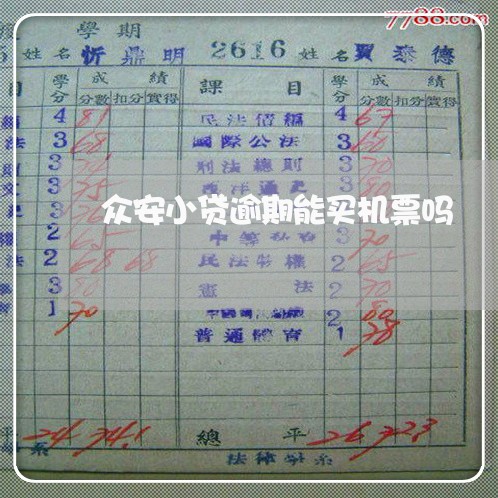 7788.com
學期
姓名 忻鼎明 2616 姓名 賈泰德
目 學分 成績 課目 學分 成績
分數 扣分 實得 分數 扣分 實得
4 81 民法債編 4 67
法 3 68 國際公法 3 60
3 刑法總則 3 70
文 3 75 西洋通史 3 80
众安小贷逾期能买机票吗
2 65 3 70
法 2 68 68 民法物權 2 65
3 80 憲法 2 70
1 70 2 80
普通體育 1 78
平 24 74.1 總平 26 72.3
系 法律學系